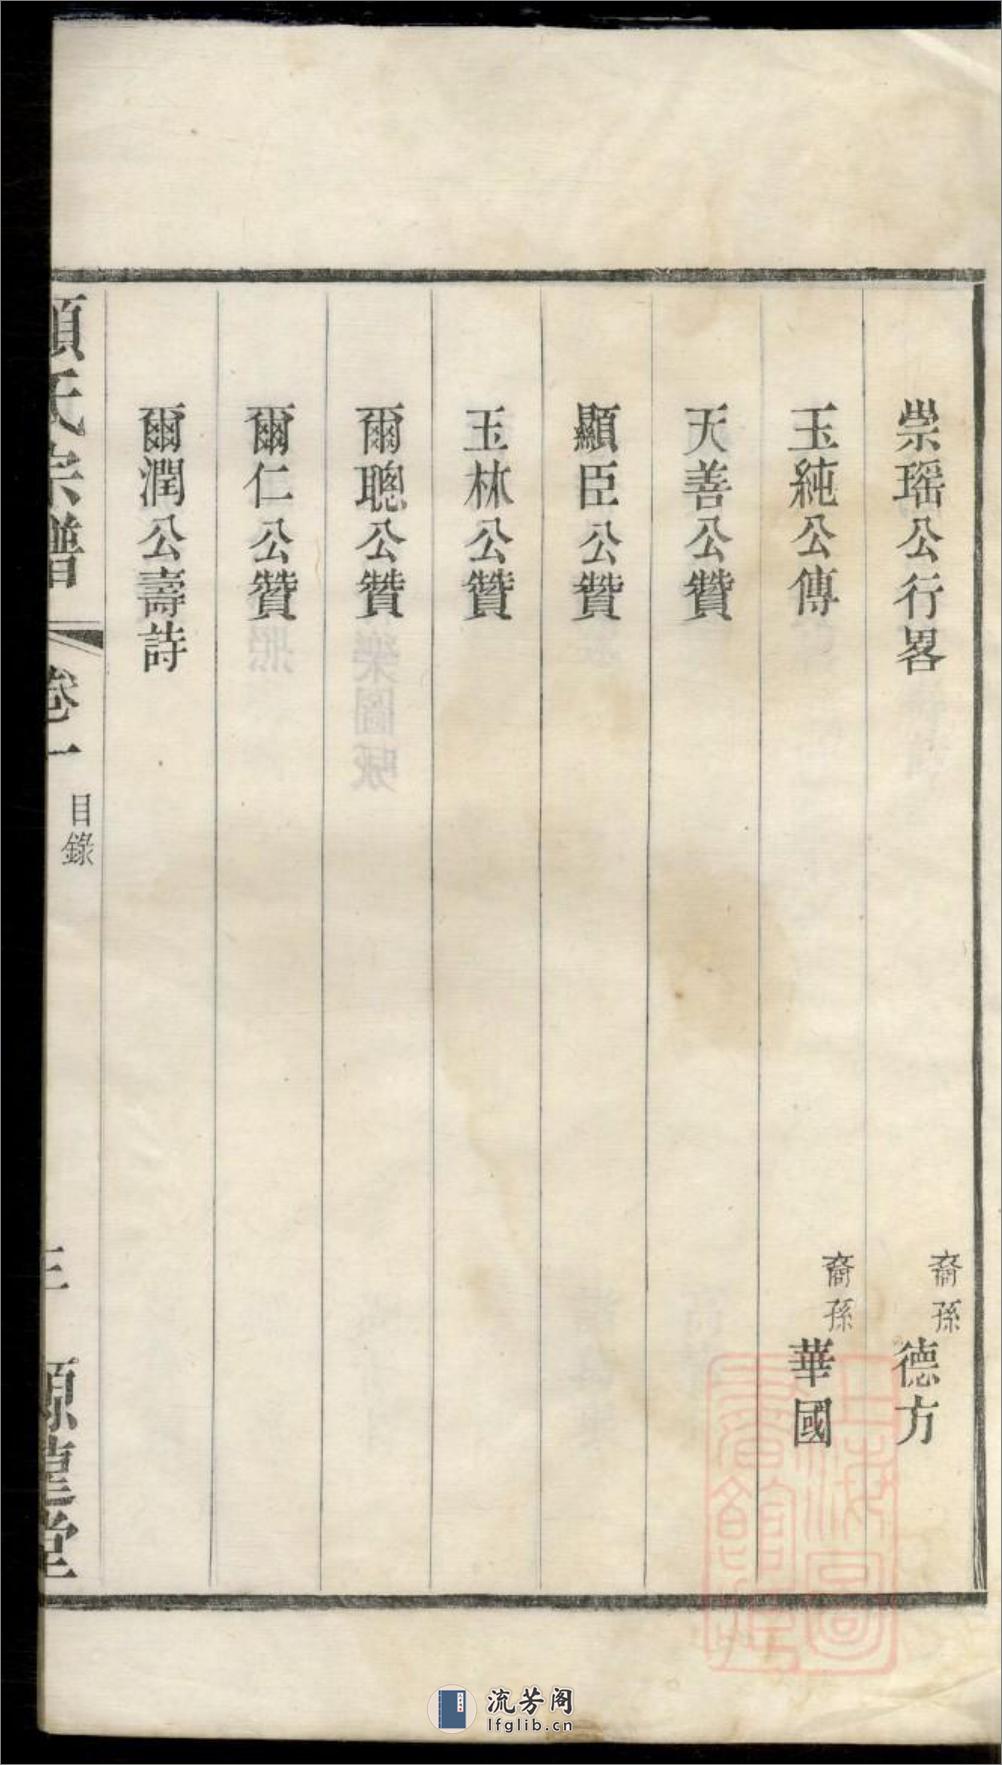 崇瑶公行畧 裔孫德方
玉純公傳 裔孫華國
天善公贊
顯臣公贊
玉林公贊
爾聰公贊
爾仁公贊
爾潤公壽詩
氏宗譜 卷一 目錄 三 堂
上海圖書館藏
流芳阁
lfglib.cn